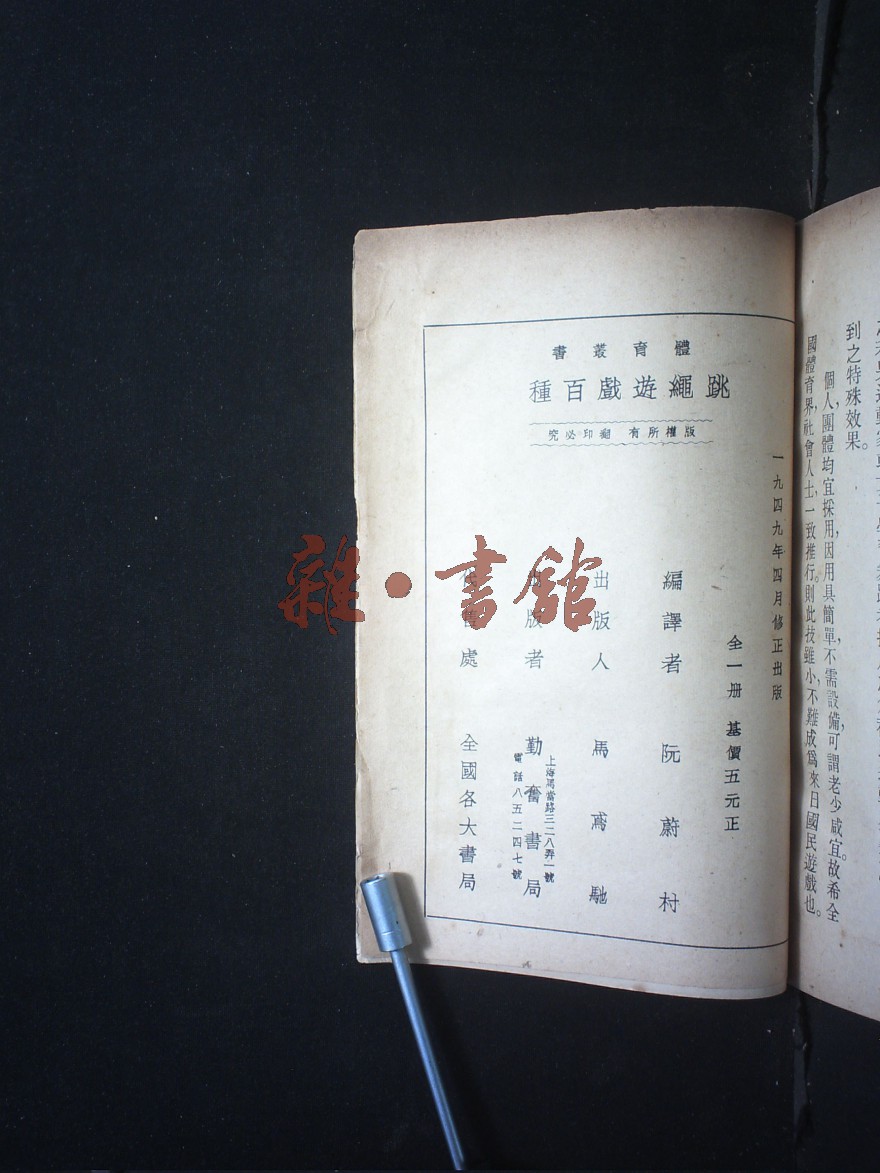 到之特殊效果。
個人，團體均宜採用，因用具簡單，不需設備，可謂老少咸宜。故希全
國體育界，社會人士，一致推行。則此技雖小，不難成爲來日國民遊戲也。
體育叢書
跳繩遊戲百種
版權所有 翻印必究
一九四九年四月修正出版
全一册 基價五元正
編譯者 阮蔚村
出版人 馬鳶馳
出版者 勤奮書局
上海馬當路三二八弄一號
電話八五二四七號
處 全國各大書局
雜·書館